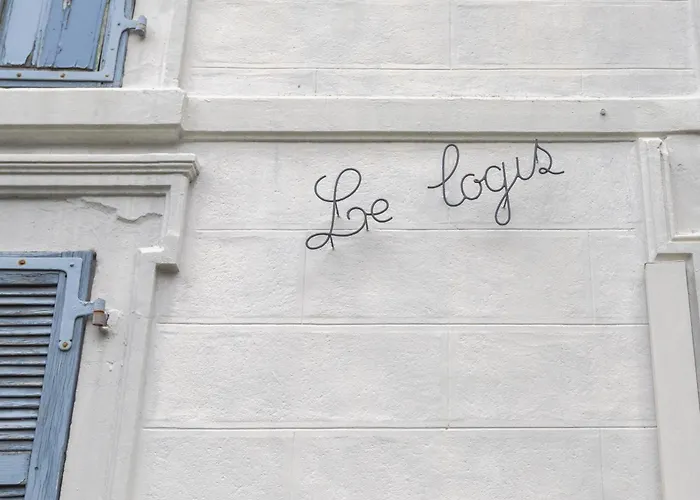 Le logis